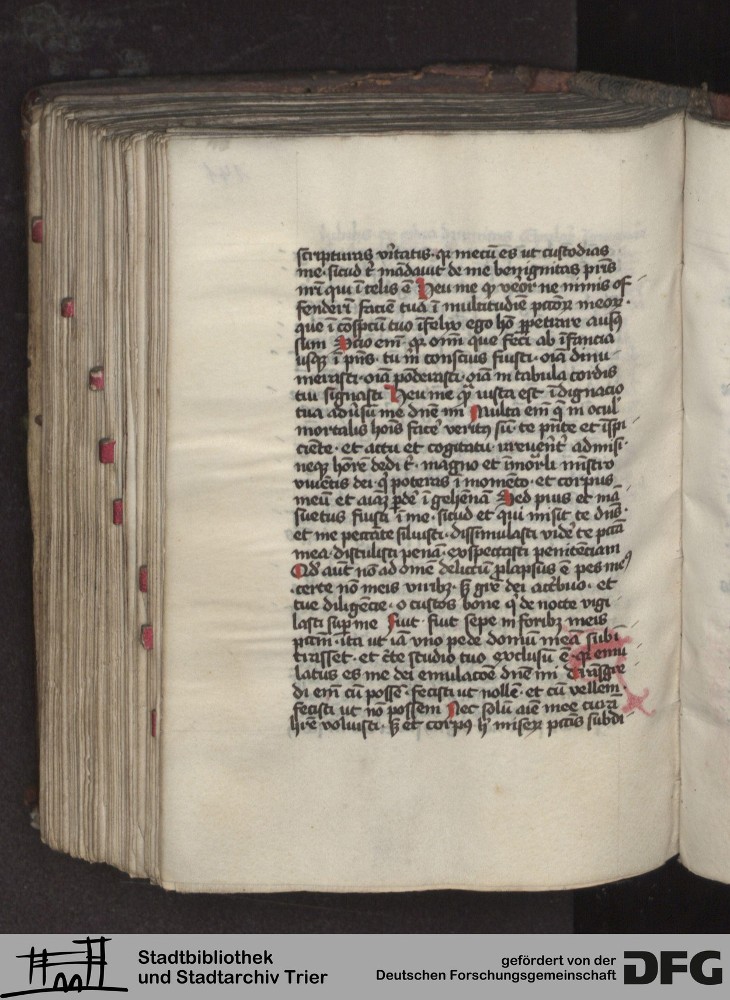 scripturas v̄itatis · qr mecū es ut custodias
me · sicud t̄ mādauit de me benignitas pr̄is
nr̄i qui ī celis ē Heu me q̄ veor ne nimis of
fenderī faciē tuā ī multitudīe pctōr̄ meor̄ ·
que ī cōsp̄ctu tuo īfelix ego hō ꝑpetrare ausꝯ
sum Scio em̄ · qr om̄i que feci ab īfancia
usqꝫ ī pn̄s · tu m̄ conscius fuisti · oīa dinu
merasti · oīa pōderasti · oīa in tabula cordis
tui signasti Heu me q̄ iusta est īdignacio
tua adūsū me dn̄e mi Multa em̄ q̄ in ocul'
mortalis hoīs fac'e veritꝯ sū · te pn̄te et īspi
ciēte · et actu et cogitatu · irreuen̄t' admisi ·
neqꝫ hōrē dedi t̄ · magno et īmōr̄li mīstro
viuētis dei · q̄ poteras ī momēto · et corpus
meū et aīaꝫ ꝑd'e ī gehēnā Sed pius et mā
suetus fuisti ī me · sicud et qui misit te dn̄s ·
et me peccāte siluisti · dissimulasti vid'e te pctā
mea · distulisti penā · exspectasti penitēciam
Qd' aūt nō ad om̄e delictū ꝓlapsus ē pes meꝯ
certe nō meis viribꝫ · s̄ gr̄e dei ac̄ibuo · et
tue diligēcie · o custos bone q̄ de nocte vigi
lasti suꝑ me Fuit fuit sepe in foribꝫ meis
pctm̄ · ita ut iā vno pede domū meā subi
trasset · et c̄te studio tuo exclusū ē · qr emu
latus es me dei emulacōe dn̄e mi
di em̄ cū posse · fecisti ut nollē · et cū vellem
fecisti ut nō possem Nec solū aīe mee curā
h're voluisti · s̄ et corpꝯ h' miser pctīs subdi
Stadtbibliothek
und Stadtarchiv Trier
gefördert von der
Deutschen Forschungsgemeinschaft
DFG